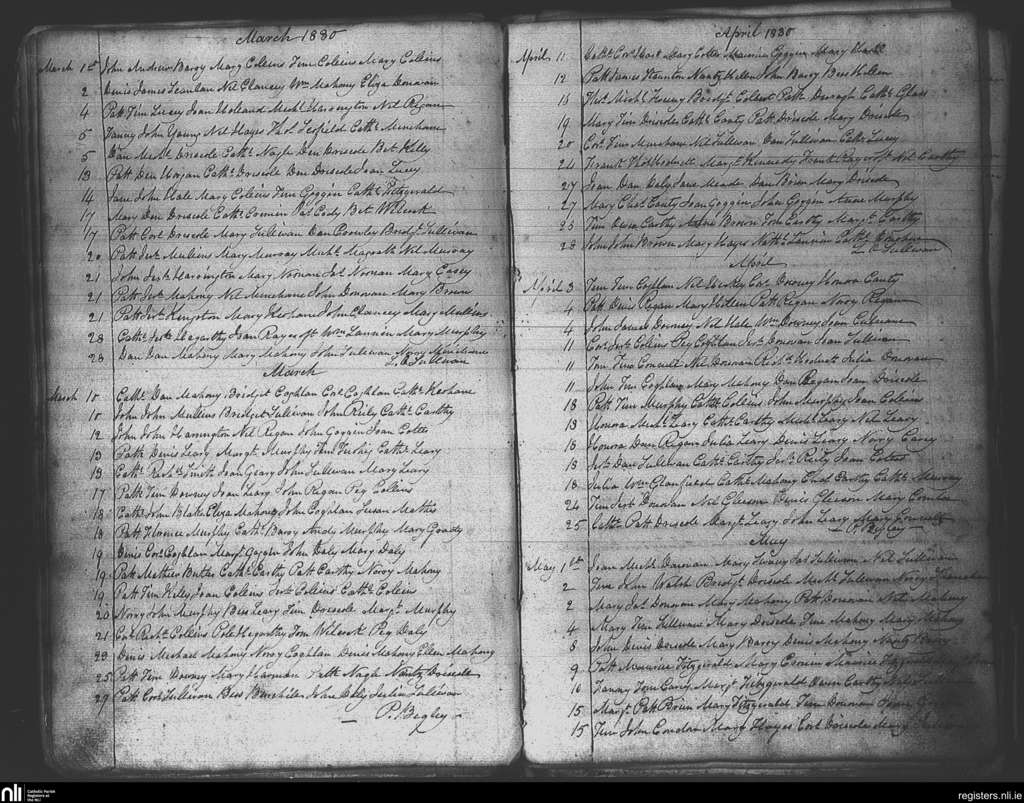 March 1830
March 1st John Andrew Barry Mary Collins Tim Collins Mary Collins
2 Denis James Scanlan Nel Clancey Wm Mahony Eliza Donovan
4 Patt Tim Lucey Joan Holland Michl Harrington Nel Regan
5 Fanny John Young Nel Hayes Cathe Minehane
5 Dan Michl Driscole Cathe Nagle Den Driscole Bet Kelly
13 Patt Den Horgan Cathe Driscole Den Driscole Joan Lucey
14 Jane John Hale Mary Collins Tim Goggin Cathe Fitzgerald
17 Mary Den Driscole Cathe Cody Bet Wilcock
17 Patt Corls Driscole Mary Sullivan Dan Crowley Bridgt Sullivan
20 Patt Jerh Mullins Mary Murray Michl Magrath Nel Murray
21 John Jerh Harrington Mary Noonan Jas Noonan Mary Casey
21 Patt Jerh Mahony Nel Minehane John Donovan Mary Brown
21 Patt Jas Kingston Mary Keohane John Clancey Mary Mullins
28 Cathe Jas Hegarthy Joan Raycroft Wm Lannin Mary Murphy
28 Dan Dan Mahony Mary Mahony John Sullivan Nory Minihane
L. O Sullivan
March
March 10 Cathe Dan Mahony Bridgit Coghlan Corl Coghlan Cathe Keohane
10 John John Mullins Bridget Sullivan John Reily Cathe Carthy
12 John John Harrington Nel Regan John Goggin Joan Cotter
13 Patt Denis Leary Margt Murphy Tim Cathe Leary
13 Cathe Richd Smith Joan Geary John Sullivan Mary Leary
17 Patt Tim Downey Joan Leary John Regan Peg Collins
18 Cathe John Blake Eliza Mahony John Coghlan Susan Mathis
18 Patt Florence Murphy Cathe Barry Andy Murphy Mary Grady
19 Denis Corl Coghlan Margt Goggin John Daly Mary Daly
19 Patt Mathew Butler Cathe Carthy Patt Carthy Norry Mahony
19 Patt Tim Kelly Joan Collins Jerh Collins Cathe Collins
20 Norry John Murphy Bess Leary Tim Driscole Margt Murphy
21 Collins Hegarthy Tom Wilcock Peg Daly
23 Denis Michael Mahony Norry Coghlan Denis Mahony Ellen Mahony
25 Patt Tim Downey Mary Harman Patt Nagle Nanty Driscole
29 Patt Corl Sullivan Bess John Daly Sullivan
P. Begley
April 1830
April 11 Cathe Corl Hart Mary Cotter Maurice Goggin Mary
12 Patt James Staunton Nanty John Barry Bess
15 Thos Michl Bridgt Patt Cathe Glass
19 Mary Tim Driscole Cathe Canty Patt Driscole Mary Driscole
20 Corl Tim Minehane Nel Sullivan Dan Sullivan Cathe Lucey
24 Frank Margt Kennedy Frank Raycroft Nel Carthy
27 Joan Dan Daly Jane Meade Dan Brien Mary Driscole
27 Mary Chas Canty Joan Goggin John Goggin Anne Murphy
25 Tim Carthy Anne Brown Tom Carthy Margt Carthy
28 John John Brown Mary Hayes Lannin Cathe
L. O Sullivan
April
April 3 Tim Tim Coghlan Nel Downey Honora Canty
4 Patt Denis Regan Mary Patt Regan Norry Regan
4 John James Downey Nel Hale Wm Downey Joan
11 Corl Jerh Collins Peg Coghlan Jerh Donovan Joan Sullivan
11 Tim Tim Nel Donovan Richd Julia Donovan
11 John Tim Coghlan Mary Mahony Dan Regan Joan Driscole
18 Patt Tim Murphy Cathe Collins John Murphy Joan Collins
13 Honora Michl Leary Cathe Carthy Michl Leary Nel Leary
18 Honora Dan Regan Julia Leary Denis Leary Norry Casey
18 Jerh Dan Sullivan Cathe Carthy Jerh Reily Joan
18 Julia Wm Cathe Mahony Carthy Cathe Murray
24 Tim Jerh Donovan Nel Gleeson Denis Gleeson Mary
25 Cathe Patt Driscole Margt Leary John Leary Mary
P. Begley
May
May 1st Joan Michl Donovan Mary Jas Sullivan Nel Sullivan
2 Tim John Walsh Bridgt Driscole Michl Sullivan Norry
2 Mary Jas Donovan Mary Mahony Patt Donovan Nel Mahony
4 Mary Tim Sullivan Mary Driscole Tim Mahony Mary Mahony
8 John Denis Driscole Mary Barry Denis Mahony Nanty Barry
9 Patt Maurice Fitzgerald Mary Maurice Fitzgerald
10 Fanny Tom Margt Fitzgerald Owen Carthy
15 Margt Patt Brien Mary Fitzgerald Tim Donovan
15 Tim John Condon Mary Hayes Corl Driscole Mary
nli
Catholic Parish
Registers at
the NLI
registers.nli.ie